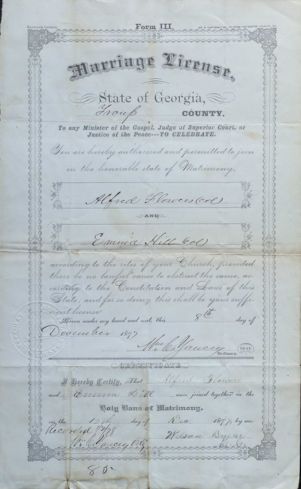 Form III.
Marriage License.
State of Georgia,
Troup COUNTY.
To any Minister of the Gospel, Judge of Superior Court, or
Justice of the Peace—TO CELEBRATE.
You are hereby authorized and permitted to join
in the honorable state of Matrimony,
Alfred Flowers Col
AND
Emma Hill Col
according to the rites of your Church, provided
there be no lawful cause to obstruct the same, ac-
cording to the Constitution and Laws of this
State, and for so doing this shall be your suffi-
cient license.
Given under my hand and seal, this 8th day of
December 1897
CERTIFICATE
I Hereby Certify, That Alfred Flowers
and Emma Hill were joined together in the
Holy Bans of Matrimony,
on the day of Dec 1897, by me
Recorded